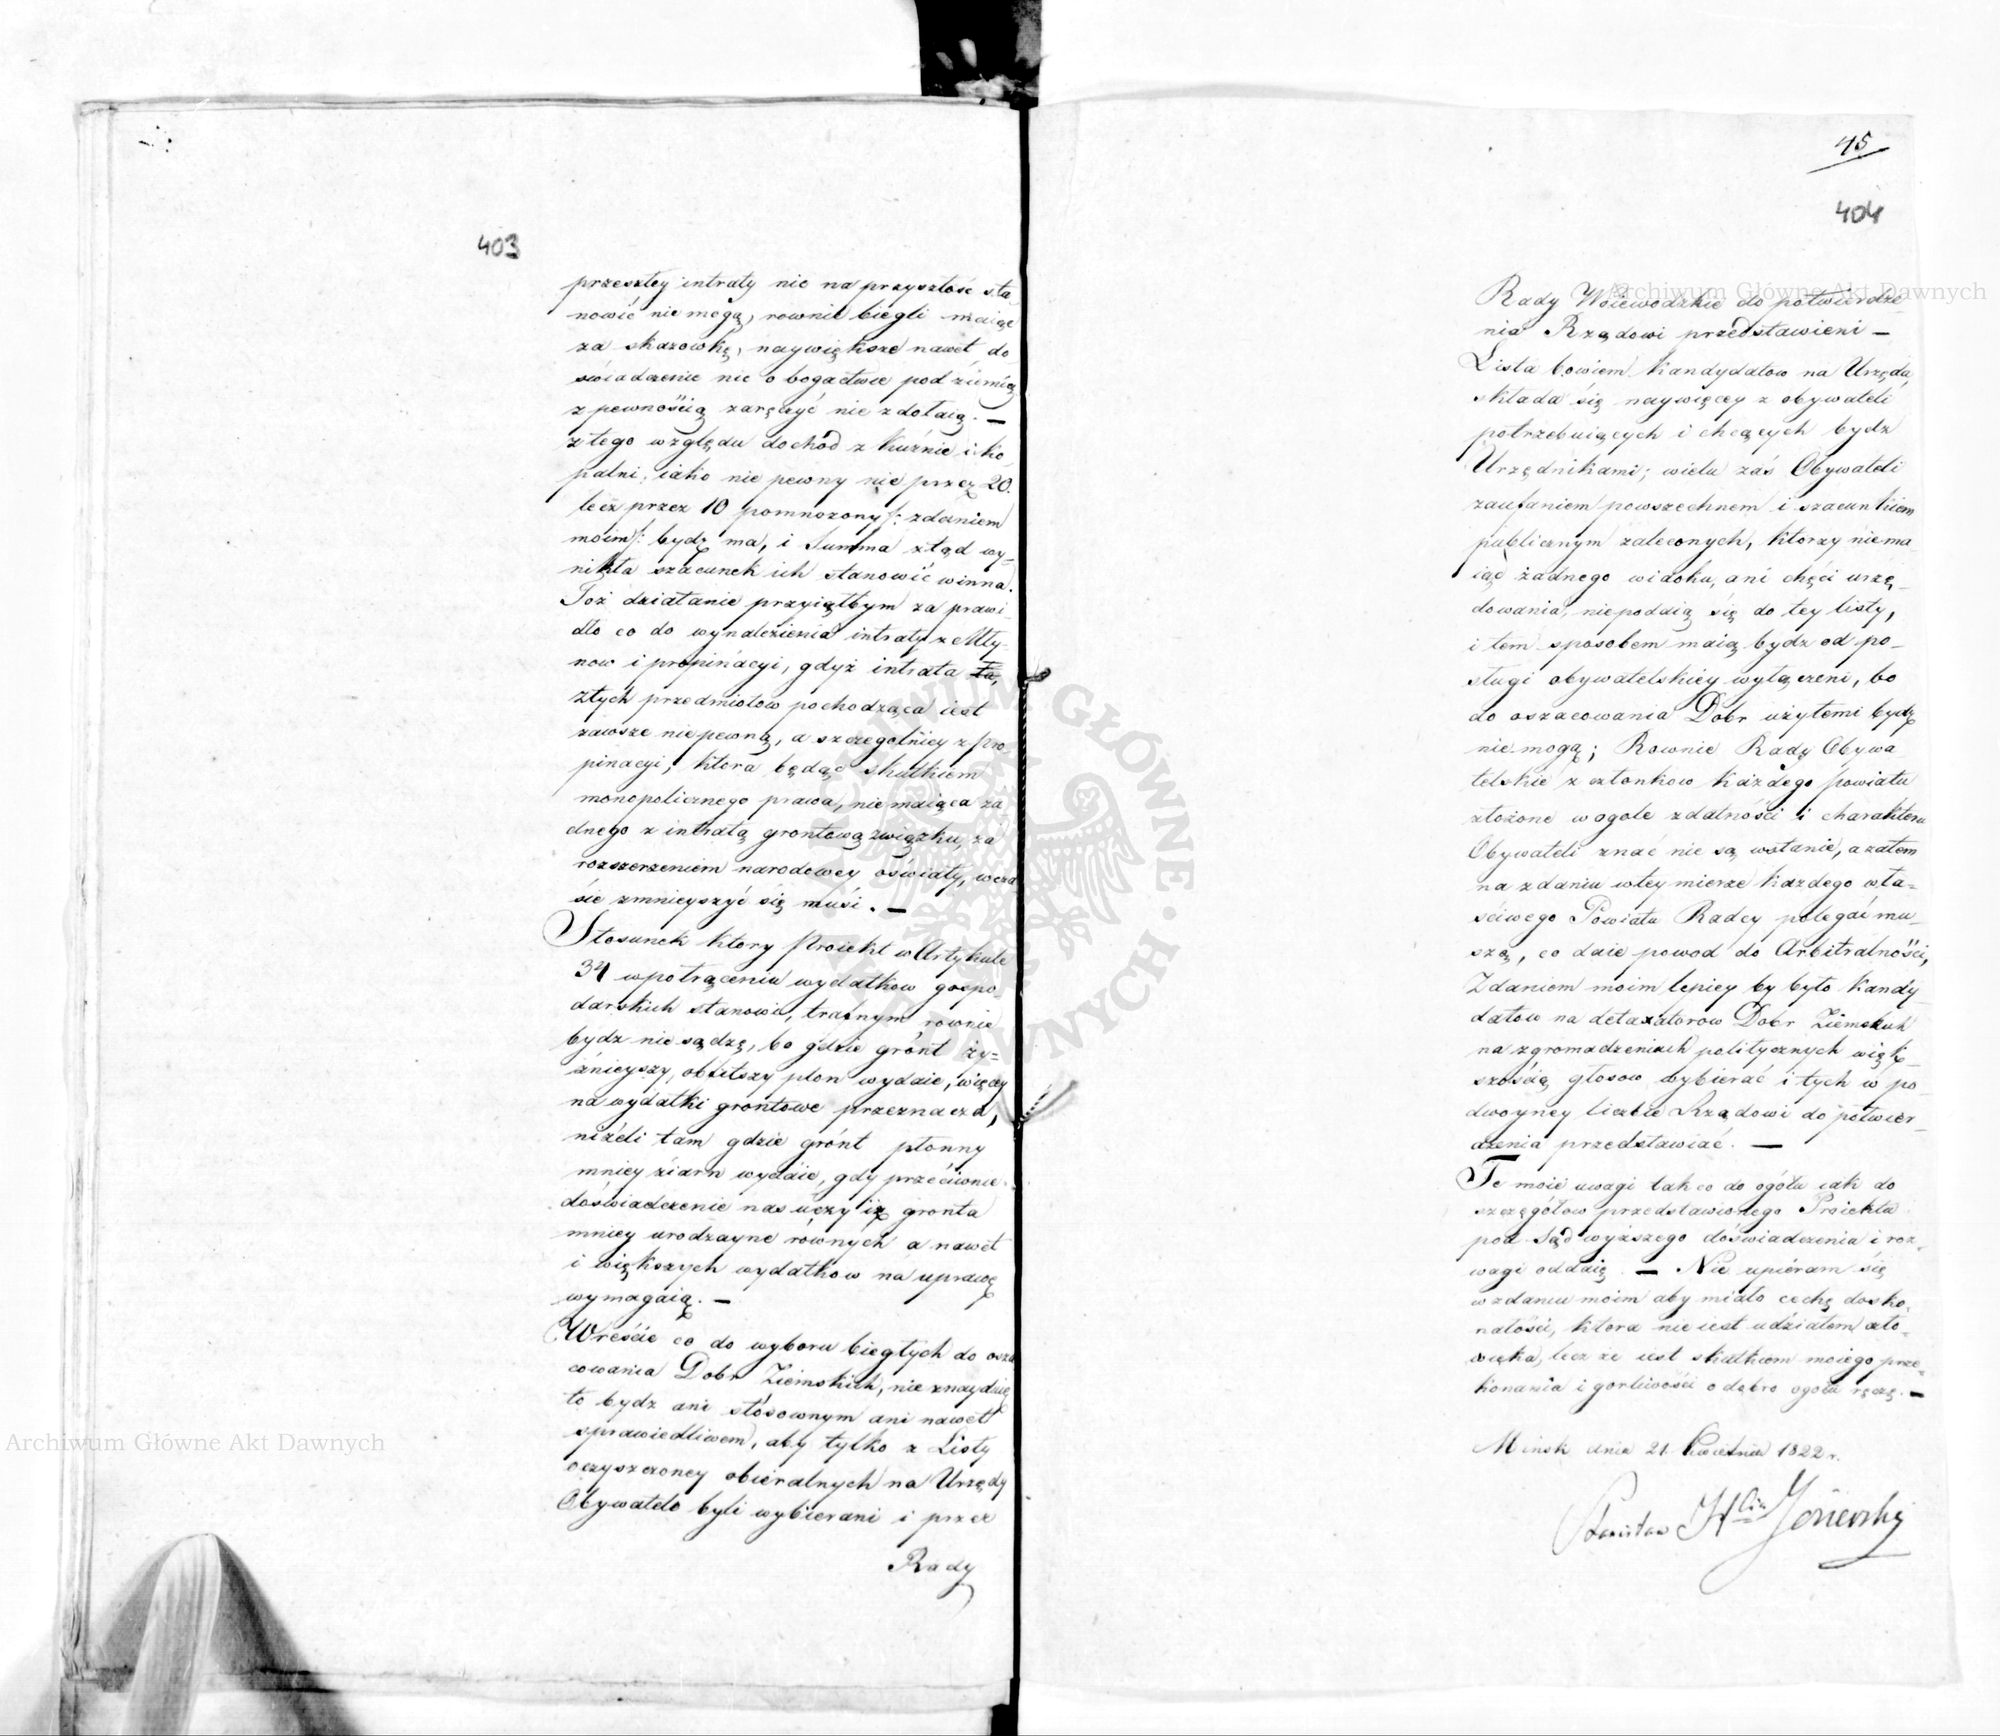 403
przeszłey intraty nic na przyszłość sta_
nowić nie mogą, rownie biegli maiąc
za skazowkę, naywiększe nawet do
swiadczenie nic o bogactwie pod ziemią
z pewnością zaręczyć nie zdołaią. —
z tego względu dochód z kuźnic i ko_
palni, iako nie pewny nie przez 20.
lecz przez 10 pomnozony /: zdaniem
moim :/ bydz ma, i Summa ztąd wy=
nikła szacunek ich stanowić winna.
Toż działanie przyiąłbym za prawi
dło co do wynalezienia intraty z Mły_
now i propinacyi, gdyż intrata ta,
ztych przedmiotow pochodząca iest
zawsze niepewną, a szczegolniey z pro
pinacyi, ktora będąc skutkiem
monopolicznego prawa, nie maiąca ża
dnego z intratą grontową związku, za
rozszerzeniem narodowey oświaty, wcza
sie zmnieyszyć się musi. —
Stosunek ktory Proiekt w Artykule
34 wpotrąceniu wydatkow gospo_
darskich stanowi, trafnym rownie
bydz nie sądzę, bo gdzie grónt ży=
źnieyszy, obfitszy plon wydaie, więcey
na wydatki grontowe przeznacza,
niżeli tam gdzie grónt płonny
mniey ziarn wydaie, gdy przeciwnie
doświadczenie nas uczy iż gronta
mniey urodzayne równych a nawet
i większych wydatkow na uprawę
wymagaią. —
Wreście co do wyboru biegłych do osza
cowania Dobr Ziemskich, nie znayduię
to bydz ani stósownym ani nawet
sprawiedliwem, aby tylko z Listy
oczyszczoney obieralnych na Urzędy
Obywatele byli wybierani i przez
Rady
45
404
Rady Woiewodzkie do potwierdze_
nia Rządowi przedstawieni —
Lista bowiem Kandydatow na Urzęda,
składa się naywięcey z obywateli
potrzebuiących i chcących bydz
Urzędnikami; wielu zaś Obywateli
zaufaniem powszechnem i szacunkiem
publicznym zaleconych, ktorzy niema
iąc żadnego widoku, ani chęci urzę_
dowania, niepodaią się do tey listy,
i tem sposobem maią bydz od po_
sługi obywatelskiey wyłączeni, bo
do oszacowania Dobr użytemi bydz
nie mogą; Rownie Rady Obywa
telskie z członkow każdego powiatu
złożone wogole zdatności i charakteru
Obywateli znać nie są wstanie, a zatem
na zdaniu wtey mierze każdego wła=
ściwego Powiatu Radcy polegać mu_
szą, co daie powod do Arbitralności,
Zdaniem moim lepiey by było Kandy_
datow na detaxatorow Dobr Ziemskich
na zgromadzeniach politycznych więk_
szością głosow wybierać i tych w po_
dwoyney liczbie Rządowi do potwier_
dzenia przedstawiać. —
Te moie uwagi tak co do ogółu iak do
szczegółow przedstawionego Proiektu
pod Sąd wyższego doświadczenia i roz_
wagi oddaię. — Nie upiéram się
w zdaniu moim aby miało cechę dosko_
nałości, ktora nie iest udziałem czło_
wieka, lecz że iest skutkiem moiego prze_
konania i gorliwości o dobro ogołu ręczę. —
Mińsk dnia 21. Kwietnia 1822 r.
Stanisław H
Archiwum Główne Akt Dawnych
Archiwum Główne Akt Dawnych